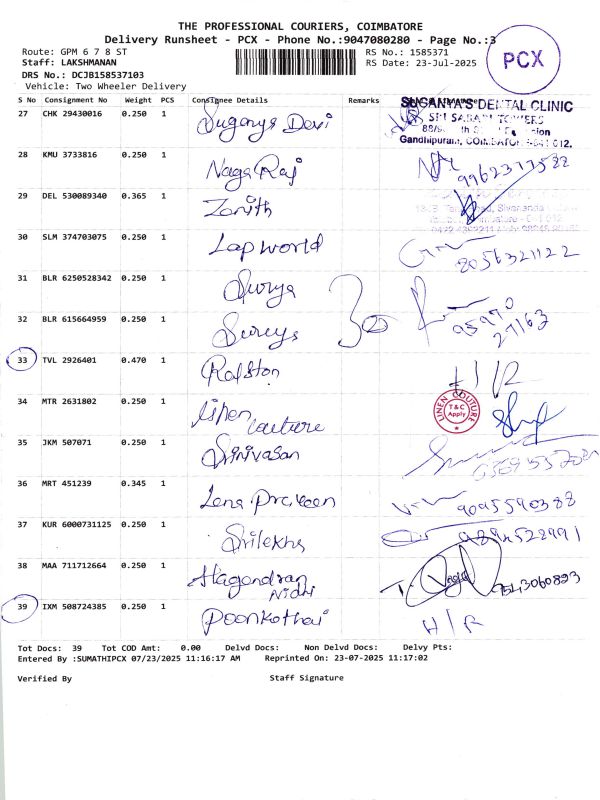 THE PROFESSIONAL COURIERS, COIMBATORE
Delivery Runsheet - PCX - Phone No.:9047080280 - Page No.:3
Route: GPM 6 7 8 ST
RS No.: 1585371
Staff: LAKSHMANAN
RS Date: 23-Jul-2025
PCX
DRS No.: DCJB158537103
Vehicle: Two Wheeler Delivery
S No Consignment No Weight PCS Consignee Details Remarks
27 CHK 29430016 0.250 1 Suganya Devi
SUGANYA'S DENTAL CLINIC
SRI SABARI TOWERS
Gandhipuram, COIMBATORE-641 012.
28 KMU 3733816 0.250 1 Naga Raj
29 DEL 530089340 0.365 1 Zenith
30 SLM 374703075 0.250 1 Lap World 8056321122
31 BLR 6250528342 0.250 1 Surya
32 BLR 615664959 0.250 1
95970
27163
33 TVL 2926401 0.470 1 Ralston
34 MTR 2631802 0.250 1 Linen couture
LINEN COUTURE
T&C
Apply
35 JKM 507071 0.250 1 Srinivasan
36 MRT 451239 0.345 1 Lena Praveen 9095590388
37 KUR 6000731125 0.250 1 Srilekha
38 MAA 711712664 0.250 1
Nidhi
39 IXM 508724385 0.250 1 Poonkothai H/R
Tot Docs: 39 Tot COD Amt: 0.00 Delvd Docs: Non Delvd Docs: Delvy Pts:
Entered By :SUMATHIPCX 07/23/2025 11:16:17 AM Reprinted On: 23-07-2025 11:17:02
Verified By Staff Signature